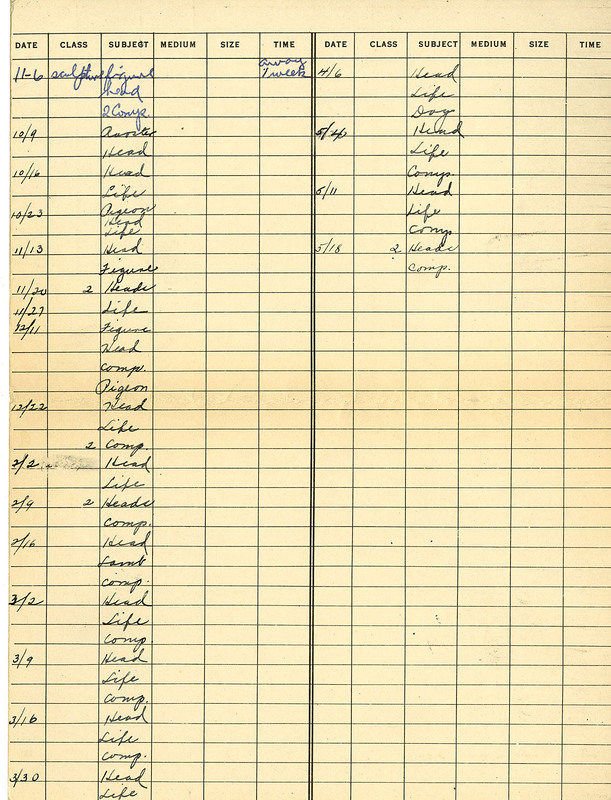 DATE CLASS SUBJECT MEDIUM SIZE TIME
11-6 sculpture figure away 1 week
head
2 Comps.
10/9 Rooster
Head
10/16 Head
Life
10/23 Pigeon
Head
Life
11/13 Head
Figure
11/20 2 Heads
11/27 Life
12/11 Figure
Head
Comp.
Pigeon
12/22 Head
Life
2 Comp.
2/2 Head
Life
2/9 2 Heads
Comp.
2/16 Head
Lamb
Comp.
3/2 Head
Life
Comp.
3/9 Head
Life
Comp.
3/16 Head
Life
Comp.
3/30 Head
Life
DATE CLASS SUBJECT MEDIUM SIZE TIME
4/6 Head
Life
Dog
5/4 Head
Life
Comps.
5/11 Head
Life
Comp
5/18 2 Heads
Comp.